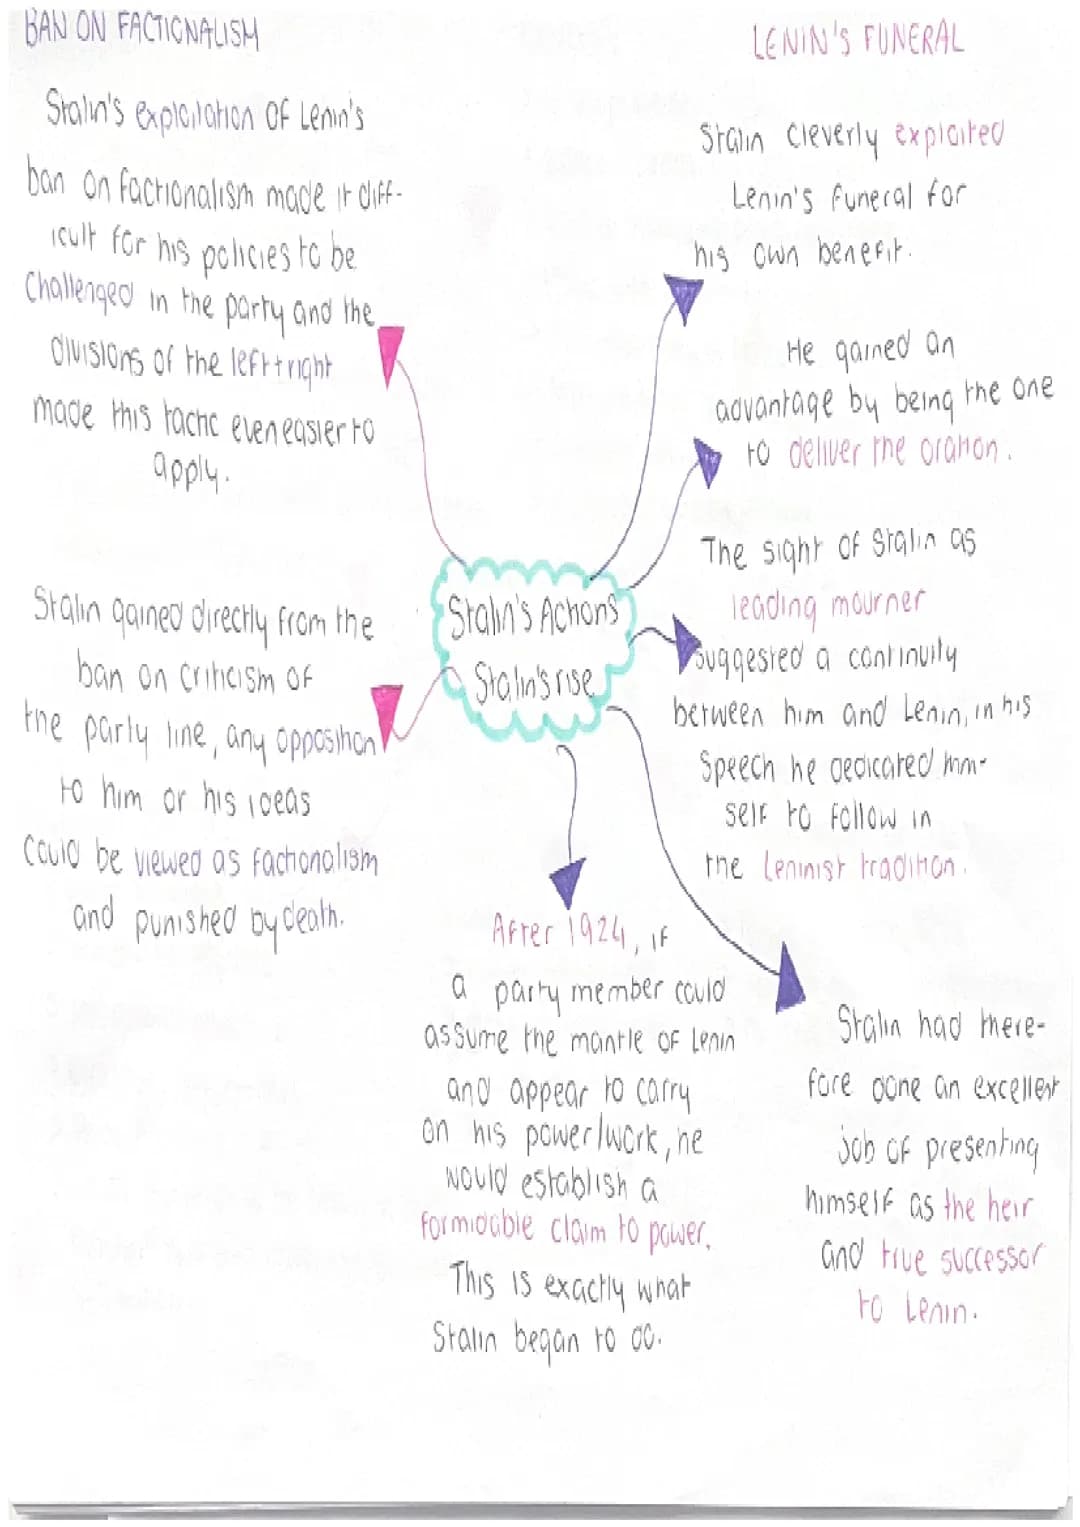 BAN ON FACTIONALISM
Stalin's exploitation of Lenin's
ban on factionalism made it diff-
icult for his policies to be
challenged in the party and the
divisions of the left+right
made this tactic even easier to
apply.
Stalin gained directly from the
ban on criticism of
the party line, any opposition
to him or his ideas
could be viewed as factionalism
and punished by death.
Stalin's Actions
Stalin's rise
LENIN'S FUNERAL
Stalin cleverly exploited
Lenin's funeral for
his own benefit.
He gained an
advantage by being the one
to deliver the oration.
The sight of Stalin as
leading mourner
suggested a continuity
between him and Lenin, in his
speech he dedicated him-
self to follow in
the Leninist tradition.
After 1924, if
a party member could
assume the mantle of Lenin
and appear to carry
on his power/work, he
would establish a
formidable claim to power.
This is exactly what
Stalin began to do.
Stalin had there-
fore done an excellent
job of presenting
himself as the heir
and true successor
to Lenin.